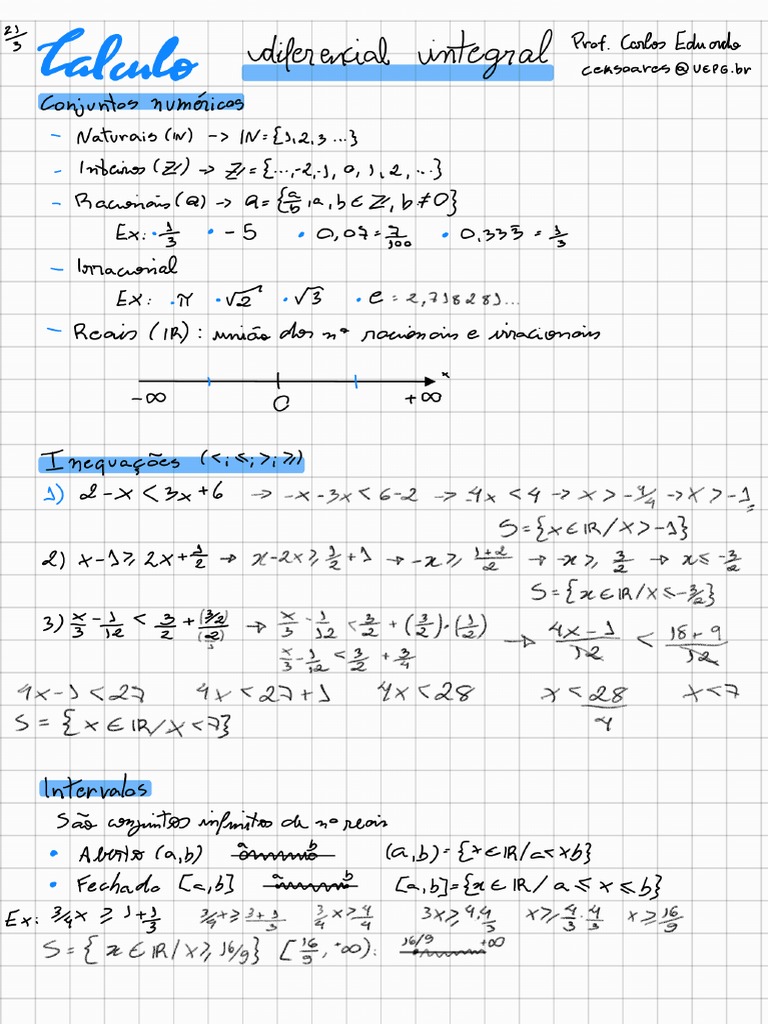 21/3
Calculo diferencial integral Prof. Carlos Eduardo
ceksoares@UEPG.br
Conjuntos numéricos
- Naturais (IN) -> IN = {1,2,3 ...}
- Inteiros (Z) -> Z = {...,-2,-1, 0, 1, 2, ...}
- Racionais (Q) -> Q = {a/b, a, b ∈ Z, b ≠ 0}
Ex: • 1/3 • - 5 • 0,07 = 7/100 • 0,333 = 1/3
- Irracional
Ex: • π • √2 • √3 • e = 2,718281...
- Reais (IR) : união dos nº racionais e irracionais
-∞ 0 +∞ x
Inequações (<; ≤; >; ≥)
1) 2 - x < 3x + 6 -> -x - 3x < 6 - 2 -> -4x < 4 -> x > -4/4 -> x > -1
S = {x ∈ IR / x > -1}
2) x - 1 ≥ 2x + 1/2 -> x - 2x ≥ 1/2 + 1 -> -x ≥ (1+2)/2 -> -x ≥ 3/2 -> x ≤ -3/2
S = {x ∈ IR / x ≤ -3/2}
3) x/3 - 1/12 < 3/2 + (3/2)/(2) -> x/3 - 1/12 < 3/2 + (3/2)·(1/2) -> (4x - 1)/12 < (18 + 9)/12
x/3 - 1/12 < 3/2 + 3/4
4x - 1 < 27 4x < 27 + 1 4x < 28 x < 28/4 x < 7
S = {x ∈ IR / x < 7}
Intervalos
São conjuntos infinitos de nº reais
• Aberto (a,b) a b (a,b) = {x ∈ IR / a < x b}
• Fechado [a,b] a b [a,b] = {x ∈ IR / a ≤ x ≤ b}
Ex: 3/4x ≥ 1 + 1/3 3/4x ≥ (3+1)/3 3/4 x ≥ 4/4 3x ≥ 4·4/3 x ≥ 4/3 · 4/3 x ≥ 16/9
S = {x ∈ IR / x ≥ 16/9} [16/9, +∞): 16/9 +∞